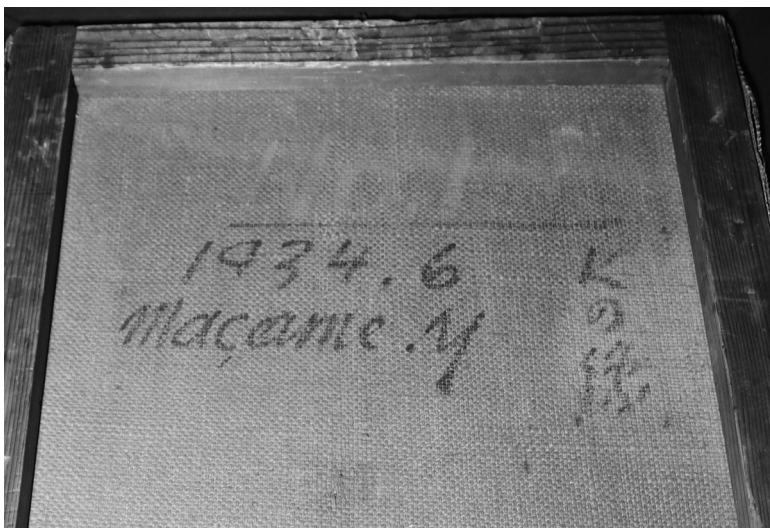 1934.6
Maçame.Y
Kの像